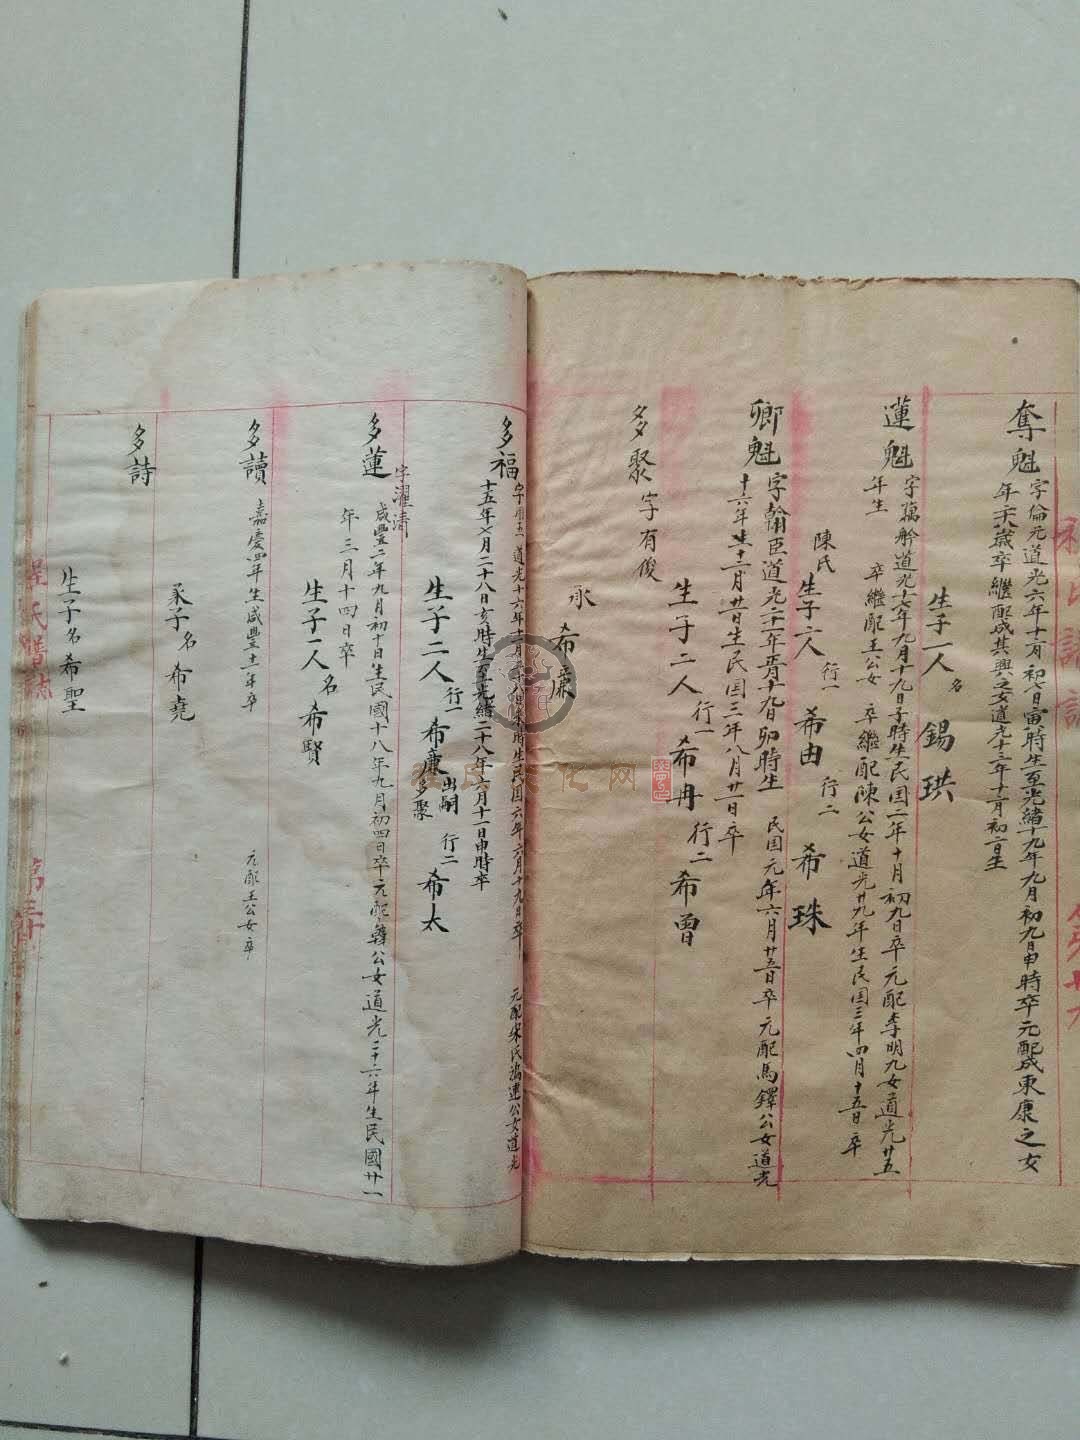 奪魁
字倫元道光六年十二月初七日寅時生至光緒十九年九月初九日申時卒元配成東康之女
年二十八歲卒繼配成其興之女道光十三年十二月初二日生
生子一人名錫珙
蓮魁
字藕舲道光十七年九月十九日子時生民国二年十月初九日卒元配李明九女道光廿五
年生 卒繼配王公女 卒繼配陳公女道光廿九年生民国三年四月十五日卒
陳氏生子二人行一希由行二希珠
卿魁
字翰臣道光二十一年正月十九日卯時生 民国元年六月廿五日卒元配馬鐸公女道光
十六年生十二月廿日生民国三年八月廿一日卒
生子二人行一希冉行二希曾
多聚字有俊
承希廉
多福
道光十六年十二月 八日 時生民国六年六月十九日卒 元配宋氏 連公女道光
十五年七月二十八日亥時生至光緒二十八年六月十一日申時卒
生子二人行一希廉出嗣多聚行二希太
多蓮字濯清
咸豐二年九月初十日生民國十八年九月初四日卒元配韓公女道光二十六年生民國廿一
年三月十四日卒
生子一人名希賢
多讀
嘉慶四年生咸豐十一年卒 元配王公女卒
承子名希堯
多詩
生子名希聖
氏譜誌
第三十